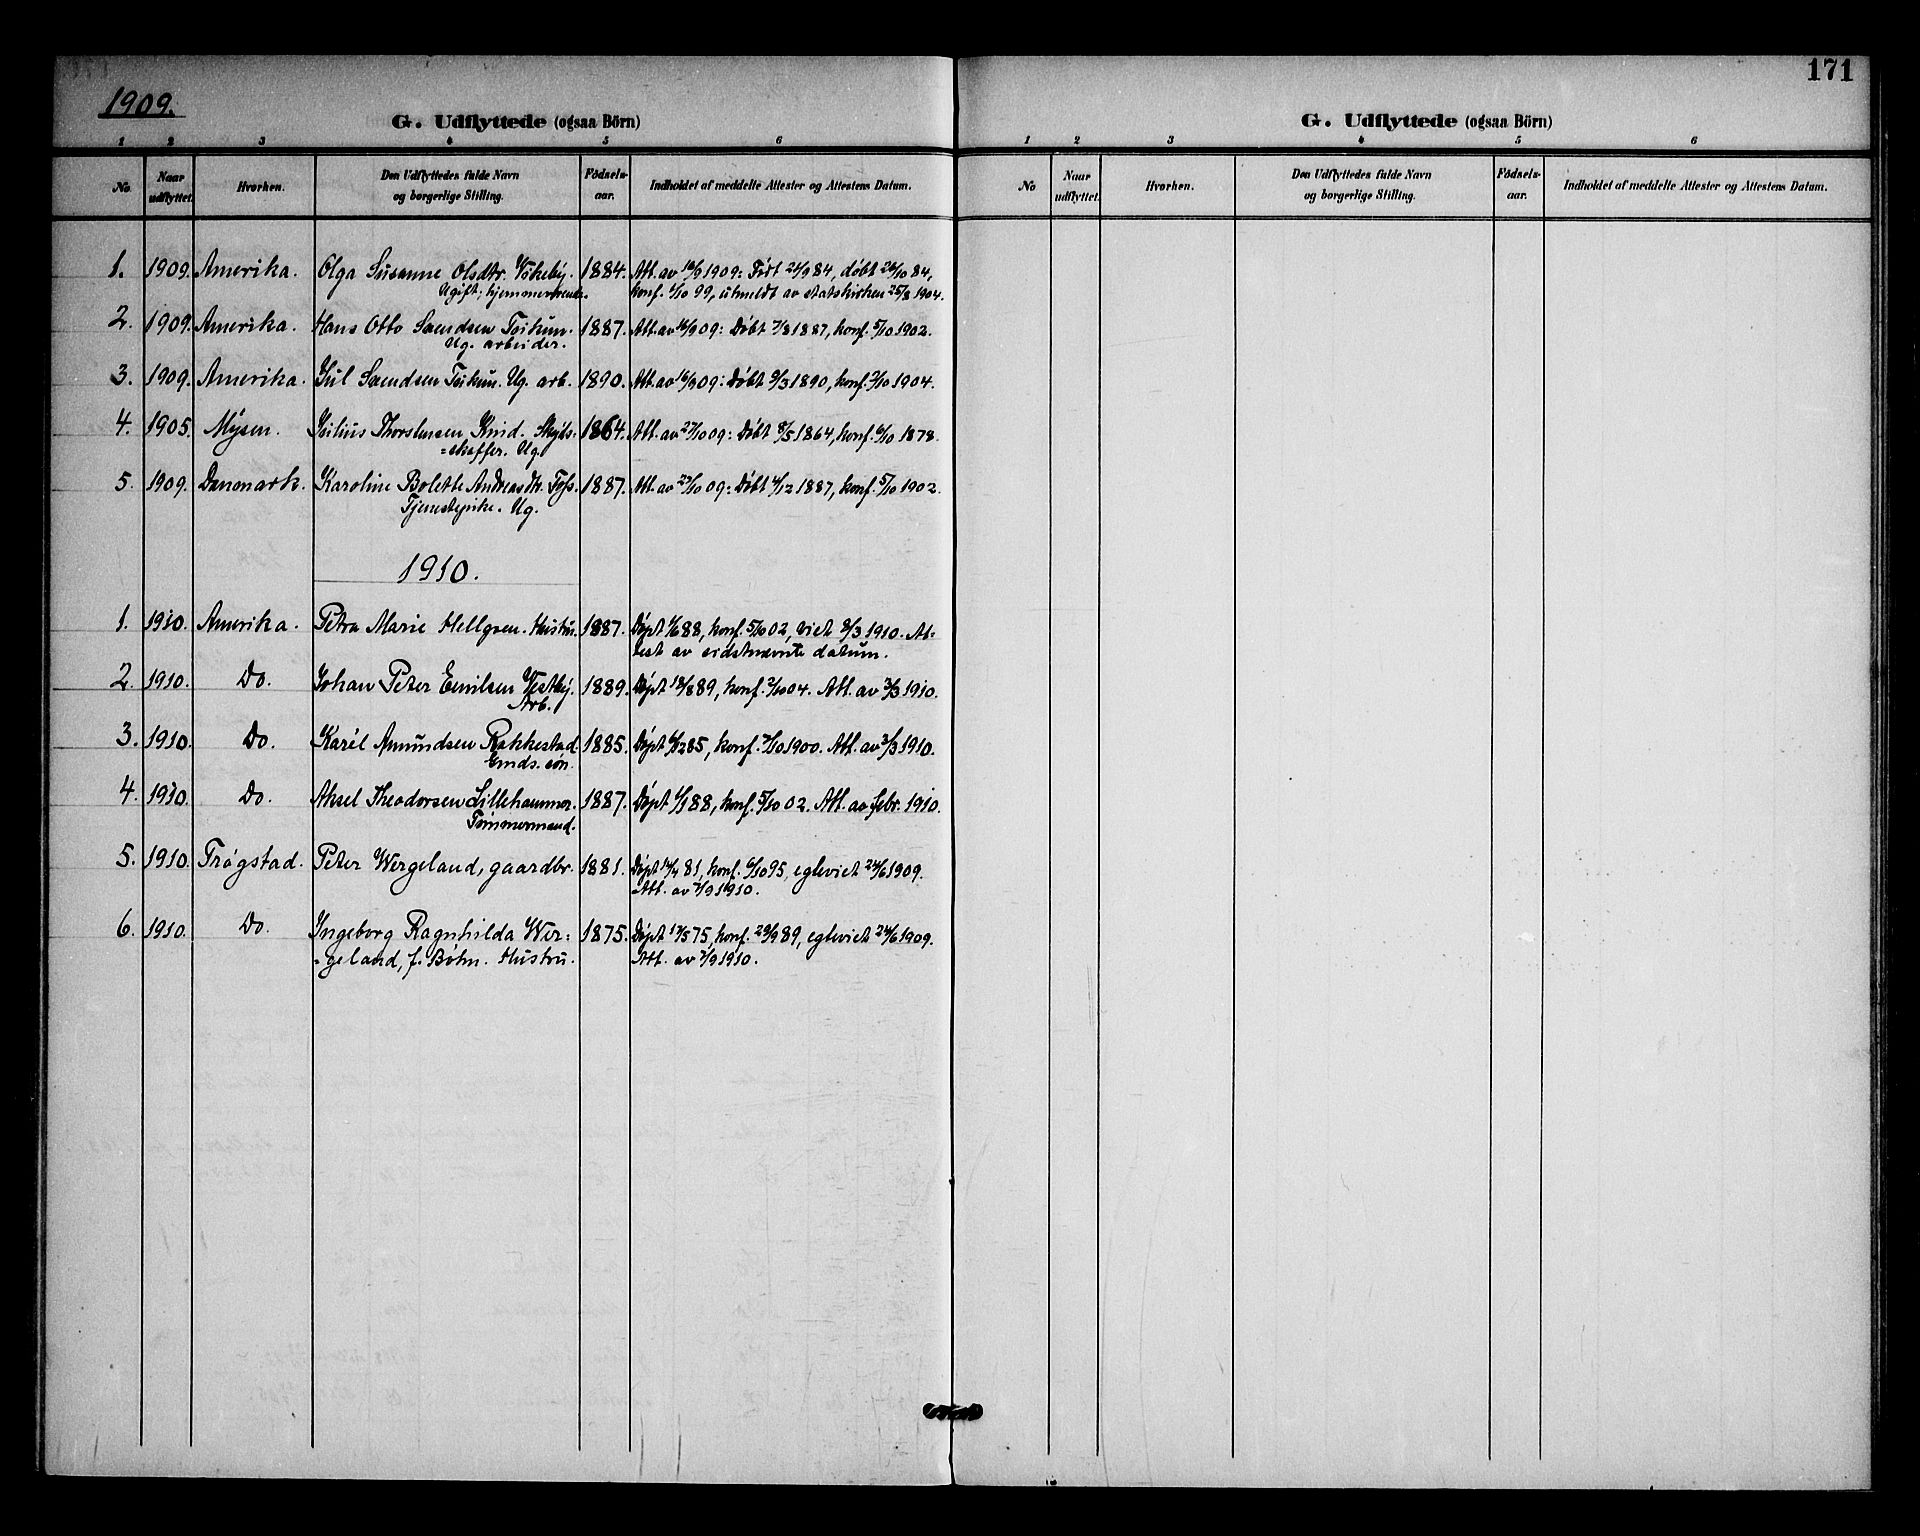 171
1909.
G. Udflyttede (ogsaa Börn)
1 2 3 4 5 6
No. Naar udflyttet. Hvorhen. Den Udflyttedes fulde Navn og borgerlige Stilling. Födsels-aar. Indholdet af meddelte Attester og Attestens Datum.
1. 1909. Amerika. Olga Susanne Olsdtr. Vikeby. 1884. Att. av 16/9 1909: Født 21/9 84, døbt 26/10 84,
Ugift; hjemmeværende. konf. 1/10 99, utmeldt av statskirken 25/8 1904.
2. 1909. Amerika. Hans Otto Svendsen 1887. Att. av 16/9 09: Døbt 7/8 1887, konf. 5/10 1902.
Ug. arbeider.
3. 1909. Amerika. Jul Svendsen Ug. arb. 1890. Att. av 16/9 09: Døbt 9/3 1890, konf. 2/10 1904.
4. 1905. Mysen. Julius Thorstensen Skyds- 1864. Att. av 27/10 09: Døbt 8/5 1864, konf. 6/10 1878.
=skaffer. Ug.
5. 1909. Danmark. Karoline Bolette Andreasdtr. 1887. Att. av 29/10 09: Døbt 4/12 1887, konf. 5/10 1902.
Tjenestepike. Ug.
1910.
1. 1910. Amerika. Petra Marie Hellgren. Hustru. 1887. Døpt 1/6 88, konf. 5/10 02, viet 8/3 1910. At-
test av sidstnævnte datum.
2. 1910. Do. Johan Peter Emilsen Vestby. 1889. Døpt 18/8 89, konf. 2/10 04. Att. av 3/3 1910.
Arb.
3. 1910. Do. Karél Amundsen Rakkestad 1885. Døpt 6/12 85, konf. 7/10 1900. Att. av 3/3 1910.
Gmds. søn.
4. 1910. Do. Aksel Theodorsen Lillehammer. 1887. Døpt 1/1 88, konf. 5/10 02. Att. av febr. 1910.
Tømmermand.
5. 1910. Trøgstad. Peter Wergeland, gaardbr. 1881. Døpt 17/4 81, konf. 6/10 95, egteviet 24/6 1909.
Att. av 7/9 1910.
6. 1910. Do. Ingeborg Ragnhilda Wer= 1875. Døpt 17/5 75, konf. 29/9 89, egteviet 24/6 1909.
=geland, f. Bøhn. Hustru. Att. av 7/9 1910.
G. Udflyttede (ogsaa Börn)
1 2 3 4 5 6
No Naar udflyttet. Hvorhen. Den Udflyttedes fulde Navn og borgerlige Stilling. Födsels-aar. Indholdet af meddelte Attester og Attestens Datum.